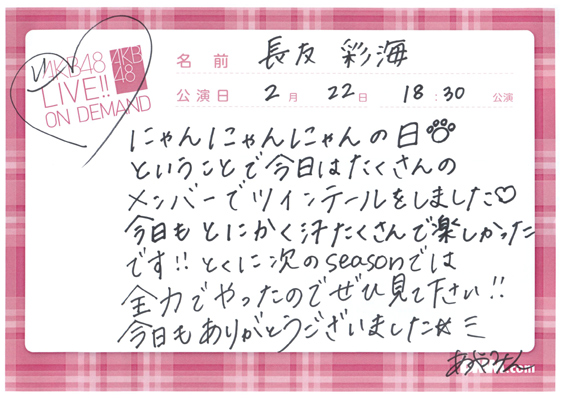 AKB48
LIVE!!
ON DEMAND
AKB
48
名前 長友 彩海
公演日 2月 22日 18:30 公演
にゃんにゃんにゃんの日
ということで今日はたくさんの
メンバーでツインテールをしました♡
今日もとにかく汗たくさんで楽しかった
です!! とくに次のseasonでは
全力でやったのでぜひ見て下さい!!
今日もありがとうございました☆ミ
.com